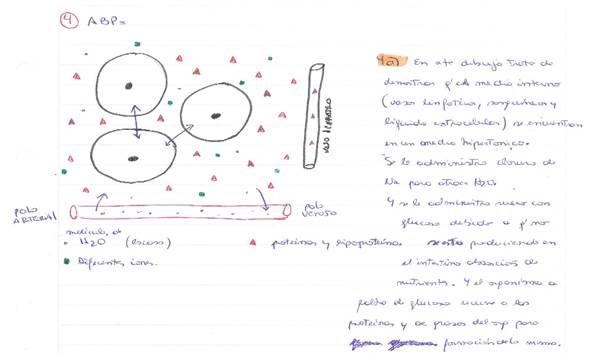 ④ ABP=
VASO LINFATICO
POLO
ARTERIAL
POLO
VENOSO
moléculas de
H2O (escaso)
proteínas y lipoproteínas
Diferentes iones.
4a) En este dibujo trato de
demostrar q' el medio interno
(vasos linfáticos, sanguíneos y
líquido extracelular) se encuentran
en un medio hipertónico.
Se le administra cloruro de
Na para atraer H2O.
Y se le administra suero con
glucosa debido a q' no
se está produciendo en
el intestino absorción de
nutrientes. Y el organismo a
falta de glucosa recurre a las
proteínas y ac grasos del org para
formación de la misma.